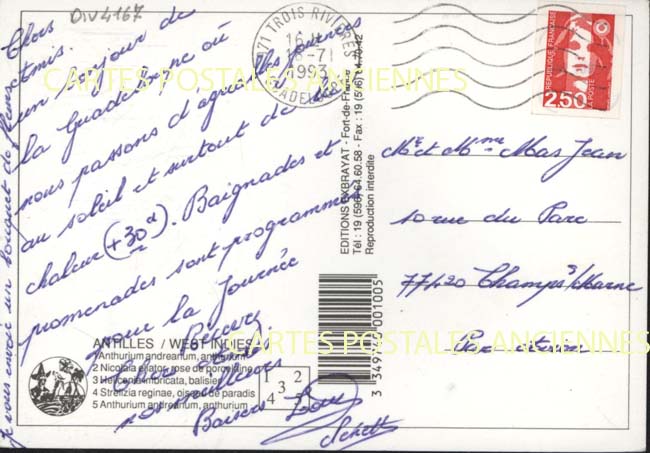 DIV4167
Chers
Amis.
un séjour de
la Guadeloupe où
nous passons d'agréables journées
au soleil et surtout de la
chaleur (+30°). Baignades et
promenades sont programmées
pour la Journée
Cher Pierre
nos meilleurs
Baisers
je vous envoie un bouquet de fleurs
971 TROIS RIVIERES
16 H
16-7
1993
GUADELOUPE
REPUBLIQUE FRANÇAISE
2,50
LA POSTE
Mr et Mme Mas Jean
10 rue du Parc
77420 Champs s/Marne
EDITIONS EXBRAYAT - Fort-de-France
Tél : 19 (596) 64.60.58 - Fax : 19 (596) 64.70.42
Reproduction interdite
ANTILLES / WEST INDIES
1 Anthurium andreanum, anthurium
2 Nicolaia elatior, rose de porcelaine
3 Heliconia imbricata, balisier
4 Strelizia reginae, oiseau de paradis
5 Anthurium andreanum, anthurium
1 2
3
4 5
CARTES POSTALES ANCIENNES
CARTES POSTALES ANCIENNES